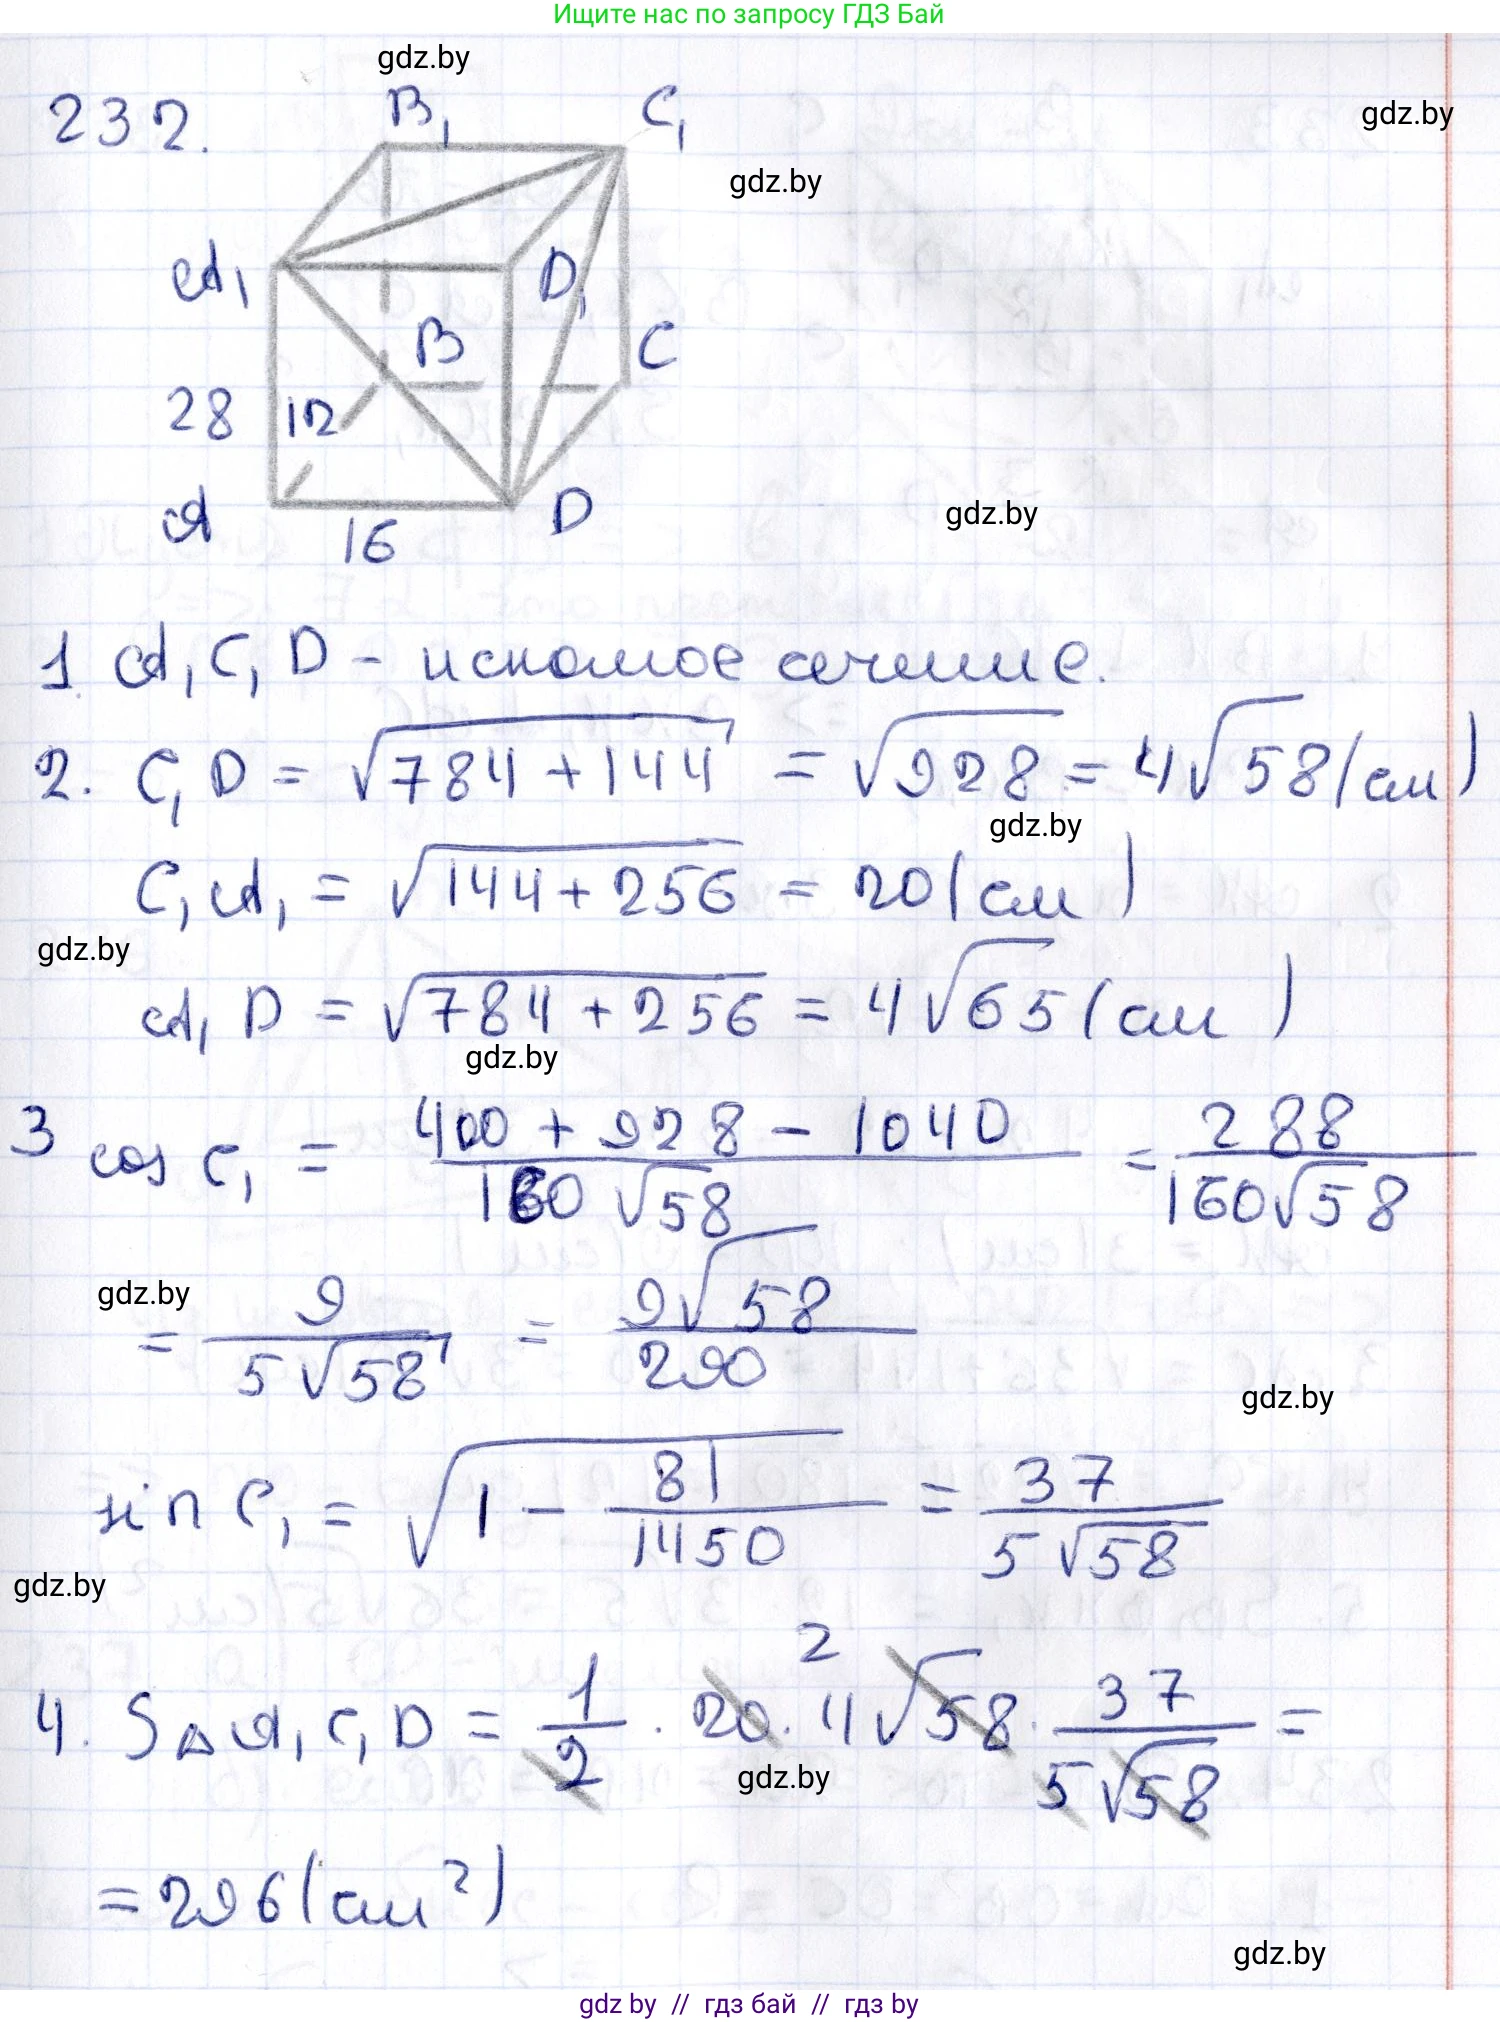 Ищите нас по запросу ГДЗ Бай
gdz.by
232.
B₁ C₁
gdz.by
gdz.by
A₁ D₁
B C
28 12
A 16 D
gdz.by
1. A₁C₁D - искомое сечение.
2. C₁D = √(784 + 144) = √928 = 4√58 (см)
gdz.by
C₁A₁ = √(144 + 256) = 20 (см)
gdz.by
A₁D = √(784 + 256) = 4√65 (см)
gdz.by
3 cos C₁ = (400 + 928 - 1040)/(160√58) = 288/(160√58)
gdz.by
= 9/(5√58) = 9√58/290
gdz.by
sin C₁ = √(1 - 81/1450) = 37/(5√58)
gdz.by
4. S△A₁C₁D = 1/2 · 20 · 4√58 · 37/(5√58) =
2
gdz.by
= 296 (см²)
gdz.by
gdz by // гдз бай // гдз by